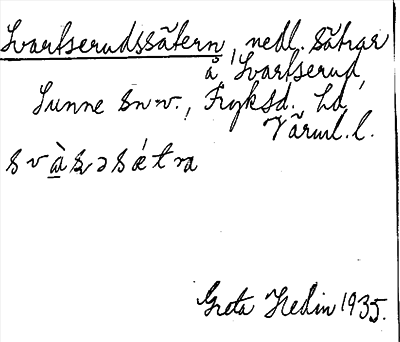 Svartserudssätern, nedl. sätrar
å Svartserud,
Sunne sn v., Fryksd. hd,
Värml. l.
s v à̲ s̨ ə s é t ra
Greta Hedin 1935.